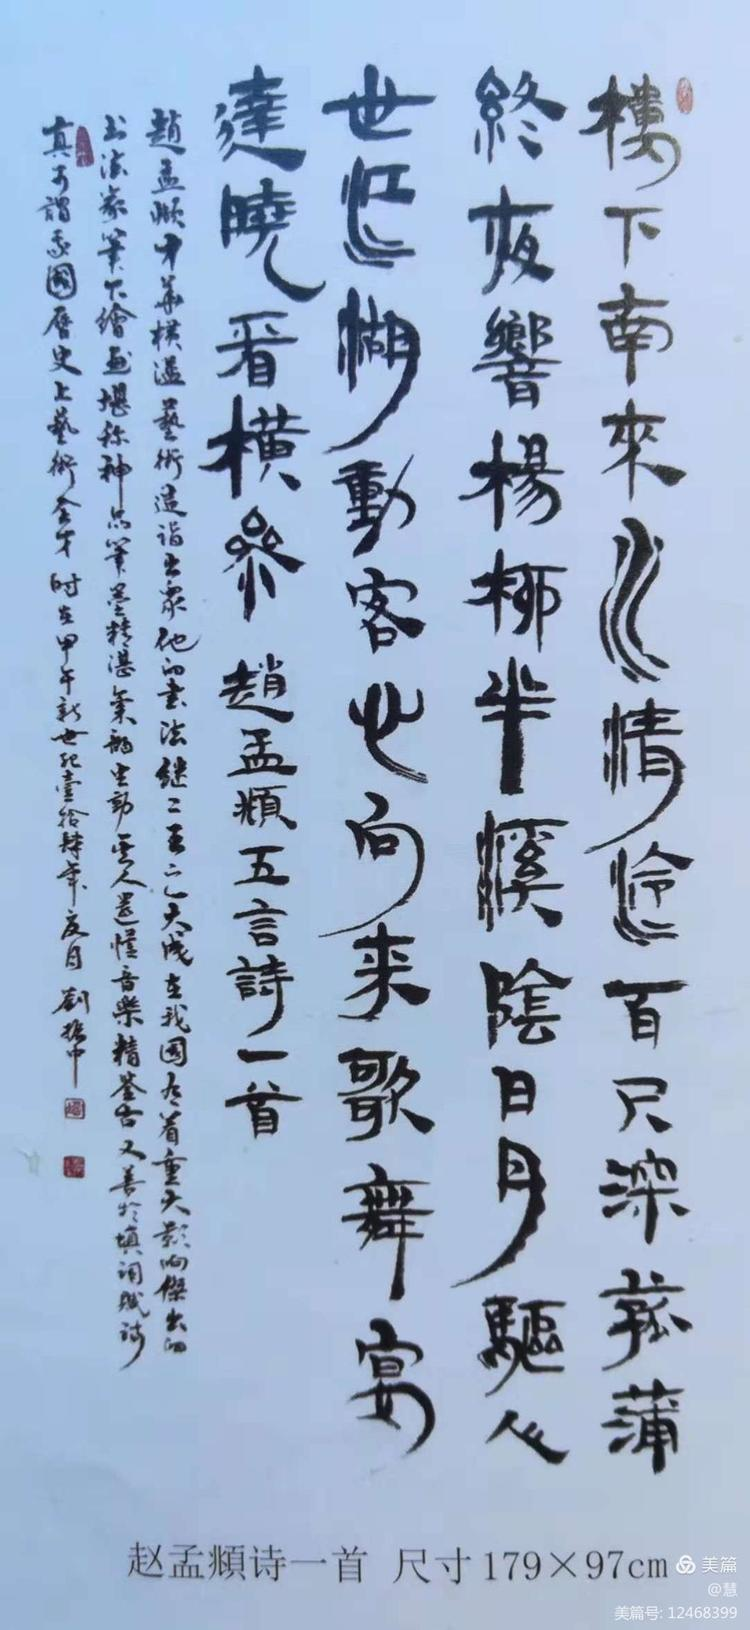 樓下南來水清泠百尺深菰蒲
終夜響楊柳半溪陰日月驅人
世江湖動客心向来歌舞宴
達曉看橫參 趙孟頫五言詩一首
趙孟頫才華橫溢藝術造詣出眾他的書法继二王之大成在我國有着重大影响傑出的
书法家筆下繪画堪称神品筆墨精湛氣韵生動其人還懂音樂精鉴古又善於填词賦诗
真可謂我國歷史上藝術全才 时在甲午新世纪壹拾肆年 月 劉振中
赵孟頫诗一首 尺寸179×97cm
美篇
@慧
美篇号: 12468399